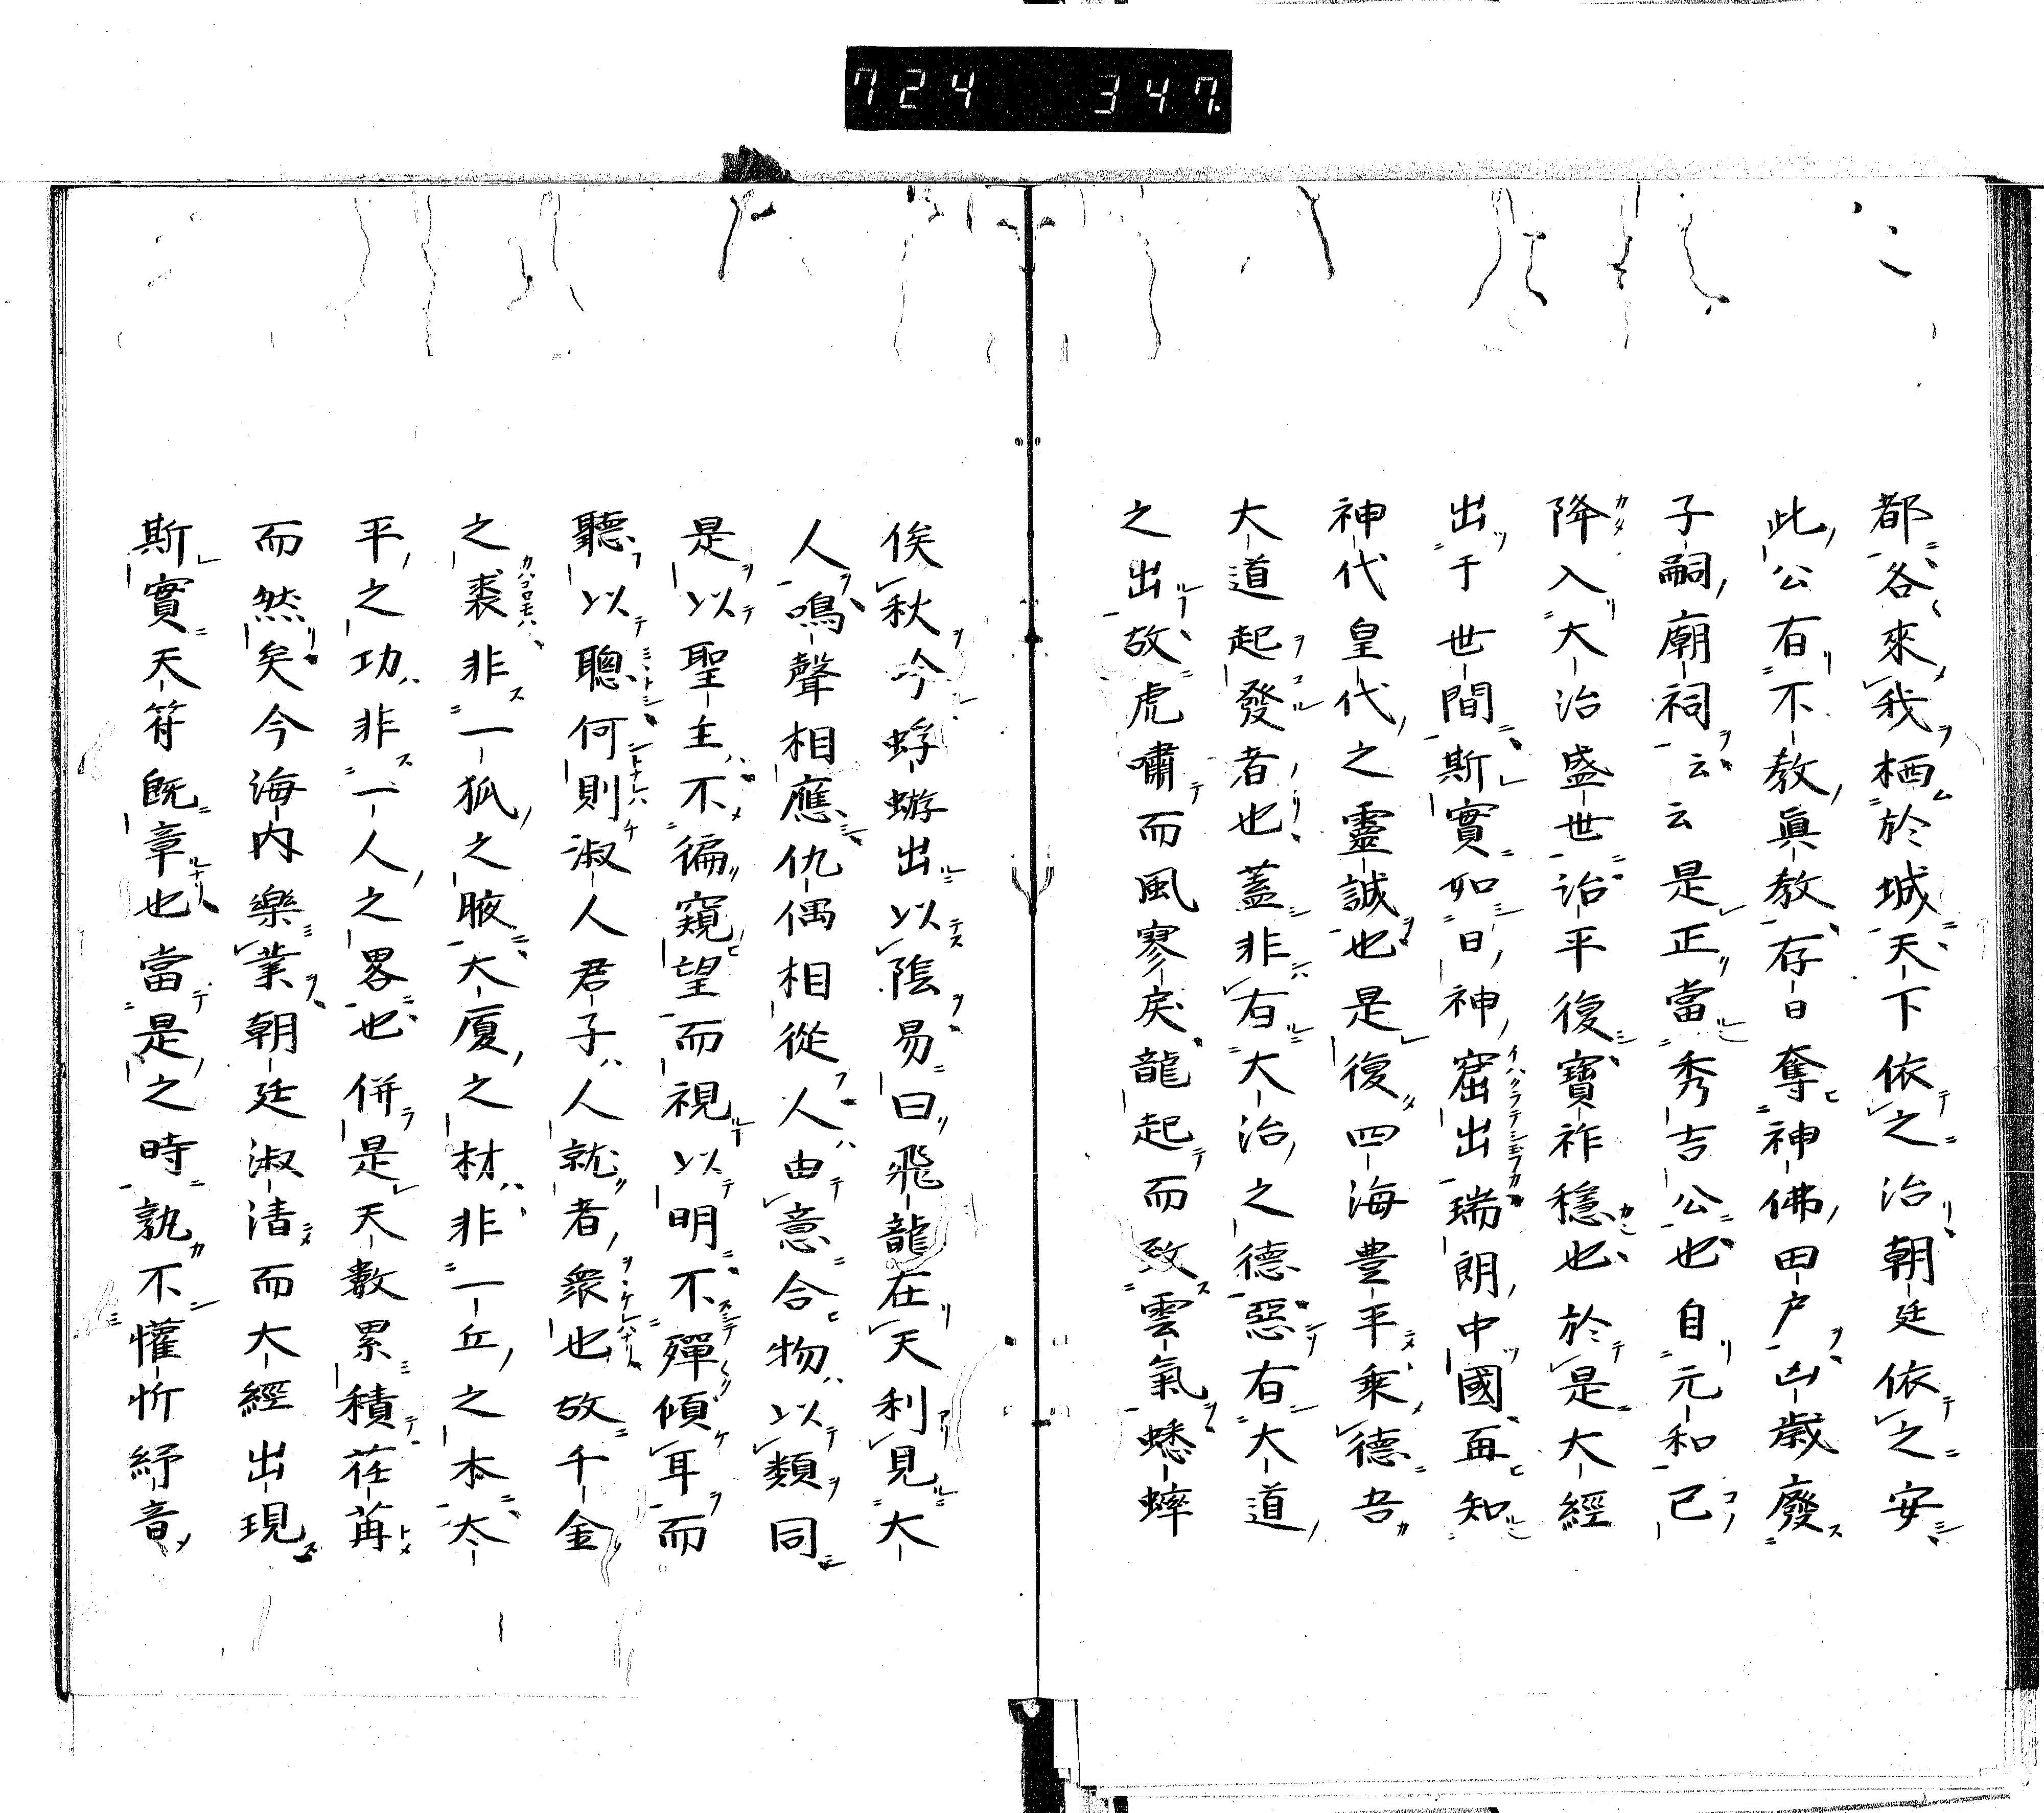 724 347
都各來我栖於城天下依之治朝廷依之安
此公有不教眞教存日奪神佛田戸凶歳廢
子嗣廟祠云云是正當秀吉公也自元和已
降入大治盛世治平復寶祚穩也於是大經
出于世間斯實如日神窟出瑞朗中國再知
神代皇代之靈誠也是復四海豊平乘德吾
大道起發者也蓋非有大治之德惡有大道
之出故虎嘯而風寥戾龍起而致雲氣蟋蟀
俟秋今蜉蝣出以陰易曰飛龍在天利見大
人鳴聲相應仇偶相從人由意合物以類同
是以聖主不徧窺望而視以明不殫傾耳而
聽以聰何則淑人君子人就者衆也故千金
之裘非一狐之腋大廈之材非一丘之本太
平之功非一人之畧也併是天數累積荏苒
而然矣今海内樂業朝廷淑清而大經出現
斯實天符既章也當是之時孰不懽忻紓音